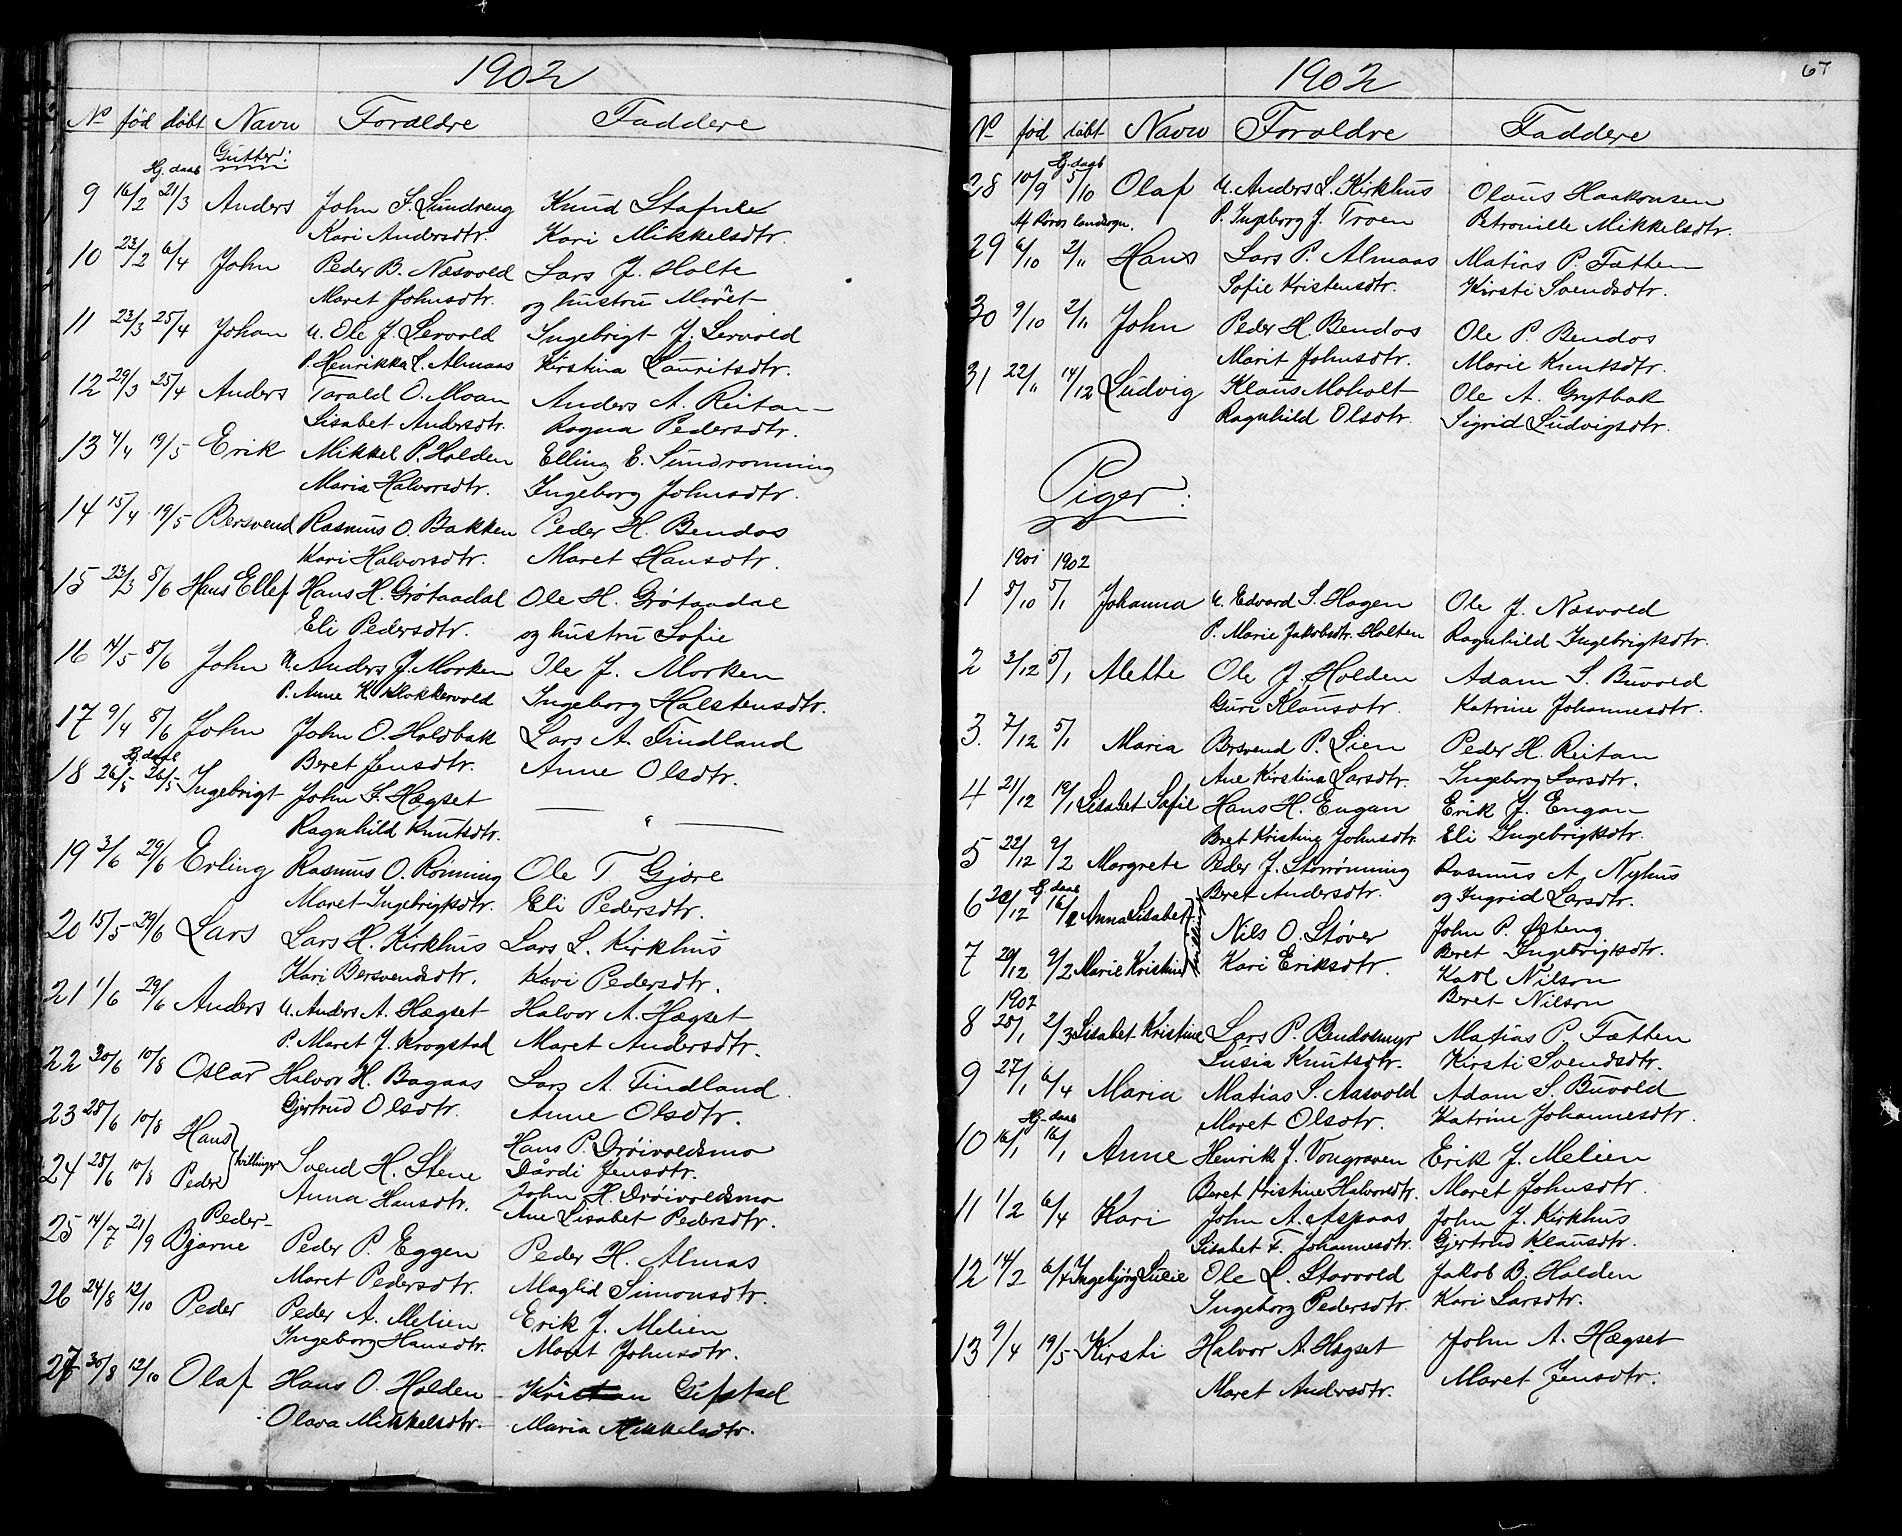 1902
No fød døbt Navn Forældre Faddere
Hj. daab Gutter:
9 16/2 21/3 Anders John F. Sundreng Knud Stafne
Kari Andersdtr. Kari Mikkelsdtr.
10 23/2 6/4 John Peder B. Næsvold Lars J. Holte
Maret Johnsdtr. og hustru Maret
11 23/3 25/4 Johan U. Ole J. Lervold Ingebrigt J. Lervold
P. Henrikka L. Almaas Kirstina Lauritsdtr.
12 29/3 25/4 Anders Tarald O. Moan Anders A. Reitan
Lisabet Andersdtr. Ragna Pedersdtr.
13 4/4 19/5 Erik Mikkel P. Holden Elling E. Sundrønning
Maria Halvorsdtr. Ingeborg Johnsdtr.
14 15/4 19/5 Bersvend Rasmus O. Bakken Peder H. Bendos
Kari Halvorsdtr. Maret Hansdtr.
15 23/3 8/6 Hans Ellef Hans H. Grøtaadal Ole H. Grøtaadal
Eli Pedersdtr. og hustru Sofie
16 14/5 8/6 John U. Anders J. Morken Ole J. Morken
P. Anne K. Slokkervold Ingeborg Halstensdtr.
17 9/4 8/6 John John O. Holdbak Lars A. Findland
Beret Jensdtr. Anne Olsdtr.
Hj. daab
18 26/5 26/5 Ingebrigt John F. Hægset
Ragnhild Knutsdtr. — " —
19 3/6 29/6 Erling Rasmus O. Rønning Ole T Gjøre
Maret Ingebrigtsdtr. Eli Pedersdtr.
20 15/5 29/6 Lars Lars H. Kirkhus Lars L. Kirkhus
Kari Bersvendsdtr. Kari Pedersdtr.
21 1/6 29/6 Anders U. Anders A. Hægset Halvor A. Hægset
P. Maret J. Krogstad Maret Andersdtr.
22 30/6 10/8 Oscar Halvor H. Bagaas Lars A. Findland
Gjertrud Olsdtr. Anne Olsdtr.
23 28/6 10/8 Hans Hans P. Drøivoldsmo
tvillinger Svend H. Stene Dårdi Jensdtr.
24 28/6 10/8 Peder Anna Hansdtr. John H. Drøivoldsmo
Ane Lisabet Pedersdtr.
25 14/7 21/9 Peder-
Bjarne Peder P. Eggen Peder H. Almås
Maret Pedersdtr. Maglid Simonsdtr.
26 24/8 12/10 Peder Peder A. Melien Erik J. Melien
Ingeborg Hansdtr. Maret Johnsdtr.
27 30/8 12/10 Olaf Hans O. Holden Gifstad
Olava Mikkelsdtr. Maria Mikkelsdtr.
1902 67
No fød døbt Navn Forældre Faddere
Hj. daab
28 10/9 5/10 Olaf U. Anders L. Kirkhus Olaus Haakonsen
Af Røros landsogn. P. Ingeborg J. Troen Petronille Mikkelsdtr.
29 6/10 2/11 Hans Lars P. Almaas Matias P. Fatten
Sofie Kristensdtr. Kirsti Svendsdtr.
30 9/10 2/11 John Peder H. Bendos Ole P. Bendos
Marit Johnsdtr. Marie Knutsdtr.
31 22/11 14/12 Ludvig Klaus Moholt Ole A. Grytbak
Ragnhild Olsdtr. Sigrid Ludvigsdtr.
Piger:
1901 1902
1 8/10 5/1 Johanna U. Edvard S. Hagen Ole J. Næsvold
P. Marie Jakobsdtr. Holten Ragnhild Ingebrigtsdtr.
2 3/12 5/1 Mette Ole J. Holden Adam S. Buvold
Guri Klausdtr. Katrine Johannesdtr.
3. 7/12 5/1 Maria Bersvend P. Lien Peder H. Reitan
Ane Kirstina Larsdtr. Ingeborg Larsdtr.
4 21/12 19/1 Lisabet Sofie Hans H. Engan Erik J. Engan
Bret Kristine Johnsdtr. Eli Ingebrigtsdtr.
5 22/12 9/2 Margrete Peder J. Storrønning Rasmus A. Nyhus
Beret Andersdtr. og Ingrid Larsdtr.
Hj. daab
6 20/12 16/2 Anna Lisabet tvillinger Nils O. Støver John P. Østeng
Beret Ingebrigtsdtr.
7 20/12 9/2 Marie Kristine Kari Eriksdtr. Karl Nilson
Beret Nilson
1902
8 28/1 2/3 Lisabet Kristine Lars P. Bendosmyr Matias P. Fatten
Lusia Knutsdtr. Kirsti Svendsdtr.
9 27/1 6/4 Maria Matias S. Aasvold Adam S. Buvold
Maret Olsdtr. Katrine Johannesdtr.
Hj. daab
10 16/1 16/1 Anne Henrik J. Vongraven Erik J. Melien
Beret Kristine Halvorsdtr. Maret Johnsdtr.
11 1/2 6/4 Kari John A. Aspaas John J. Kirkhus
Lisabet F. Johannesdtr. Gjertrud Klausdtr.
12 14/2 6/4 Ingebjørg Lusie Ole L. Storvold Jakob B. Holden
Ingeborg Pedersdtr. Kari Larsdtr.
13 9/4 19/5 Kirsti Halvor A. Hægset John A. Hægset
Maret Andersdtr. Maret Jensdtr.